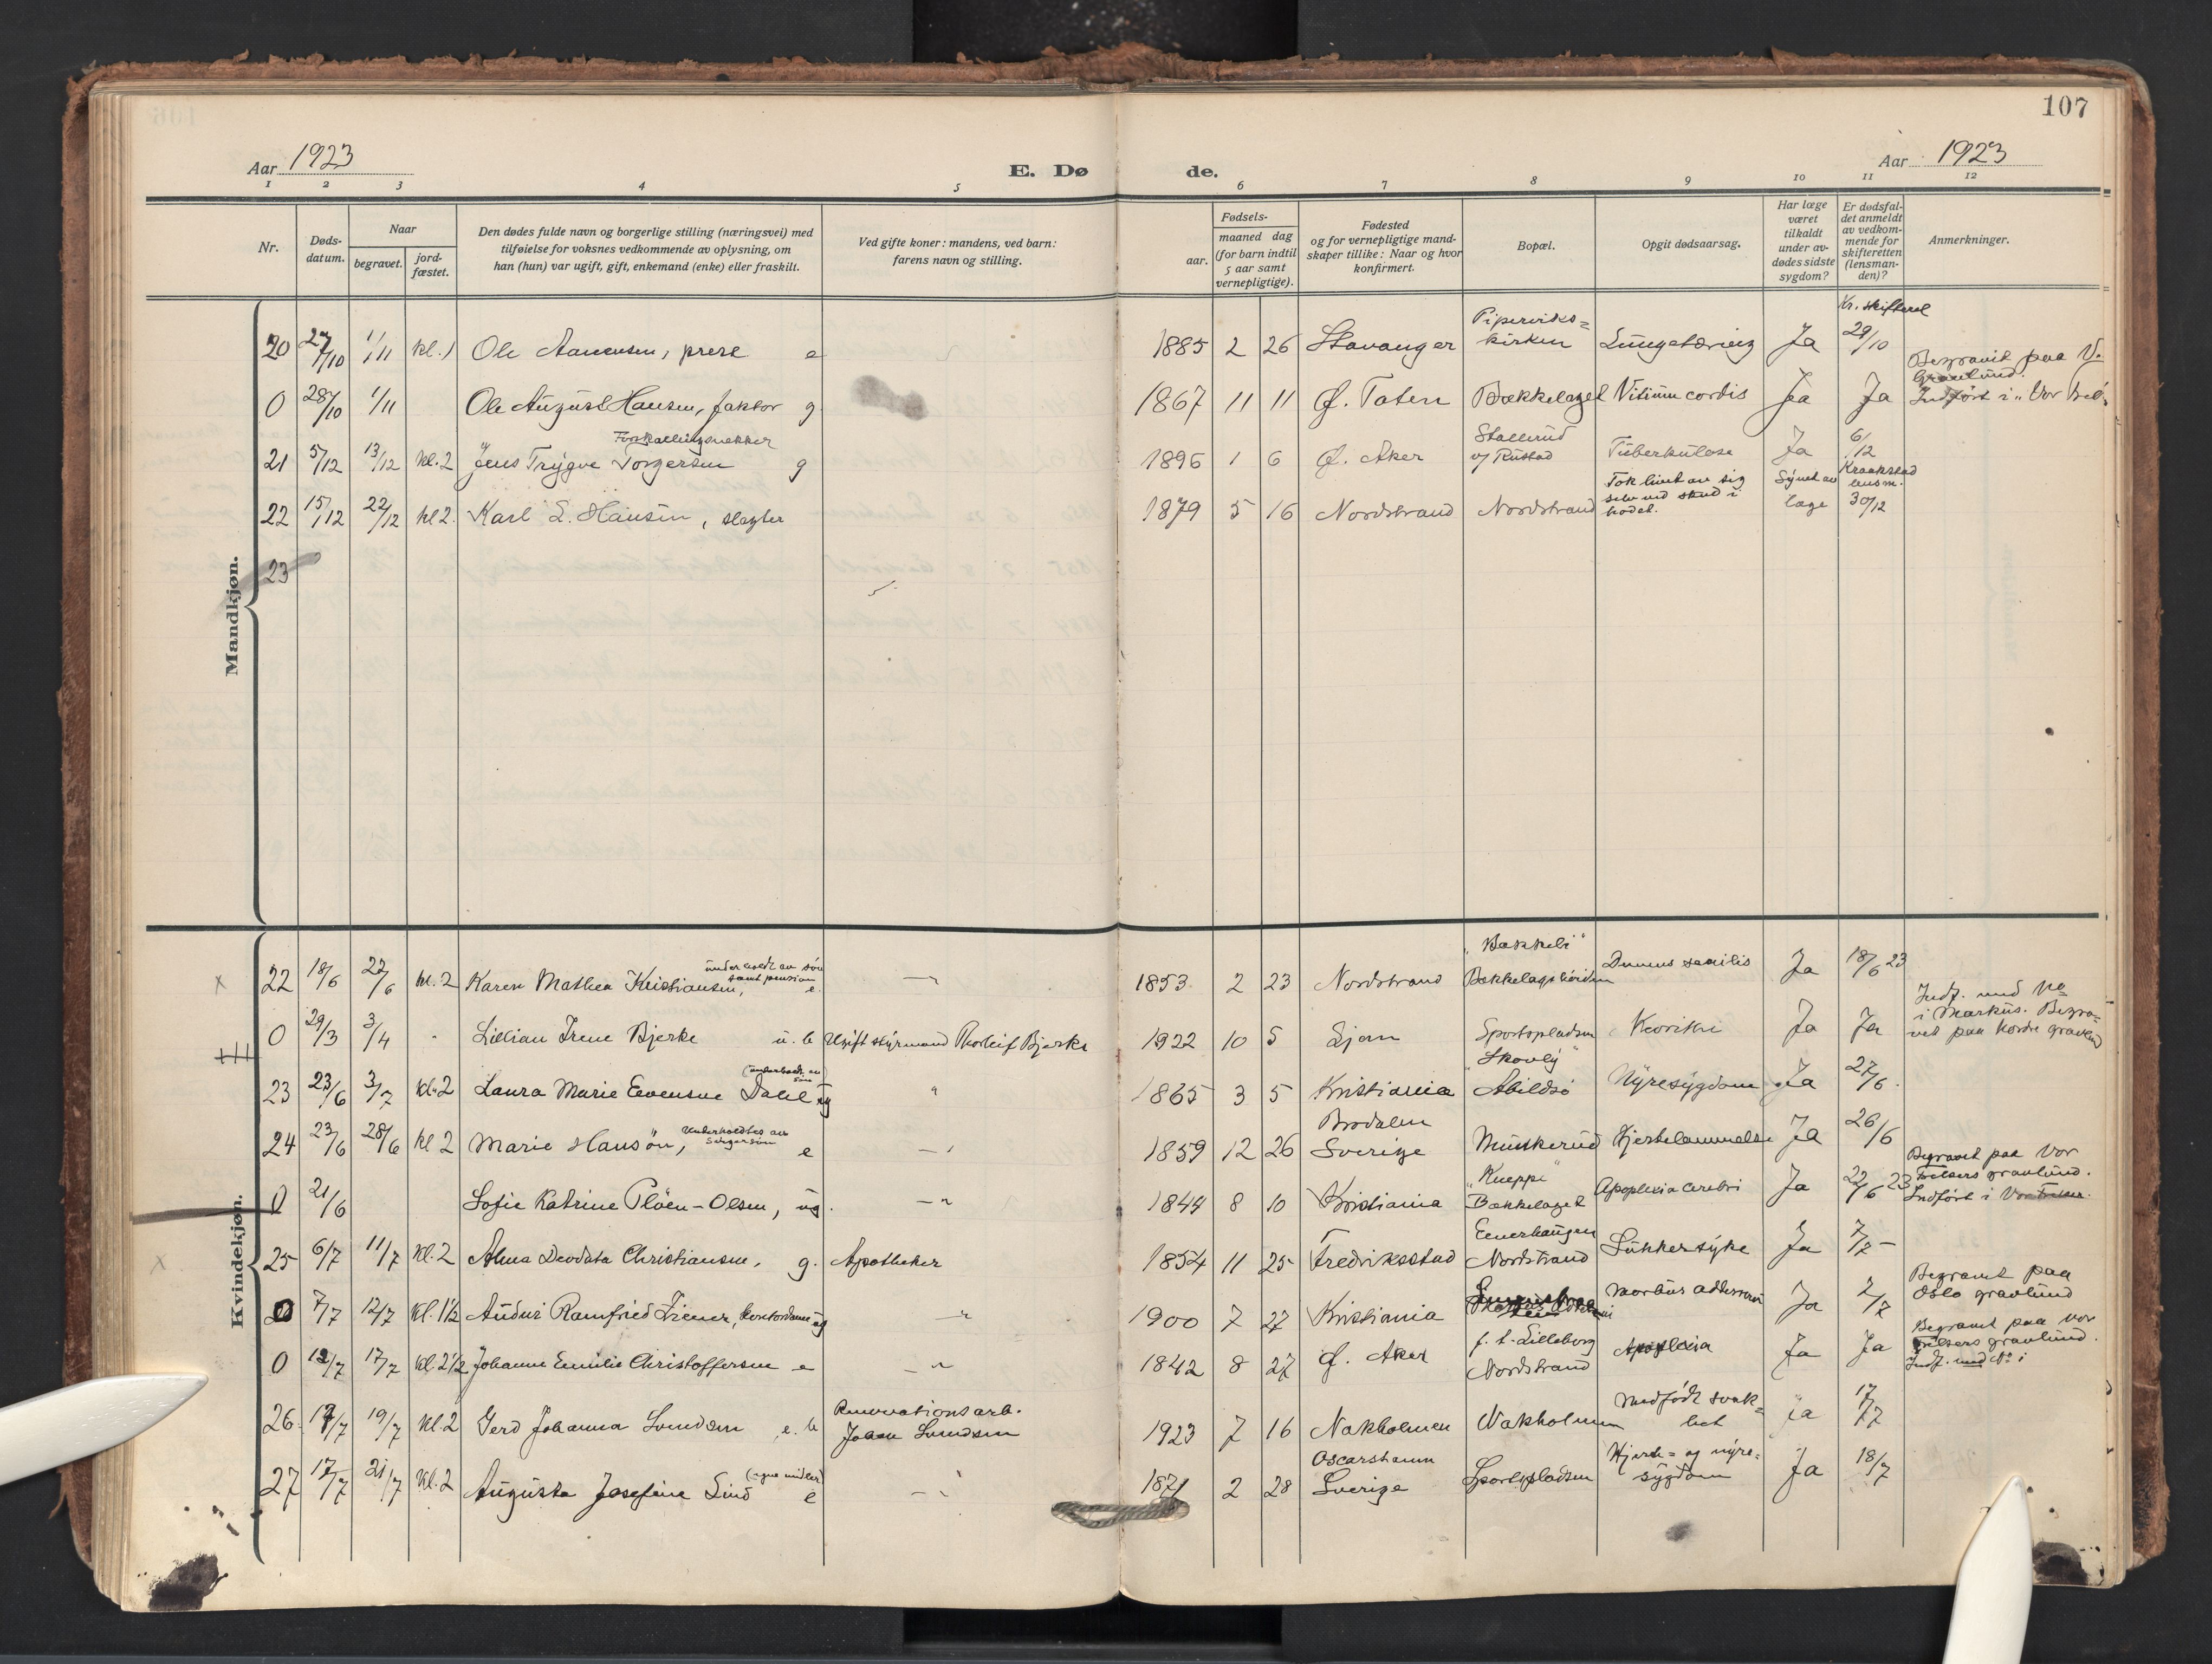 107
Aar 1923
E. Døde.
Aar 1923
1 2 3 4 5 6 7 8 9 10 11 12
Nr.
Dødsdatum.
Naar
begravet.
jordfæstet.
Den dødes fulde navn og borgerlige stilling (næringsvei) med
tilføielse for voksnes vedkommende av oplysning, om
han (hun) var ugift, gift, enkemand (enke) eller fraskilt.
Ved gifte koner: mandens, ved barn:
farens navn og stilling.
Fødsels-
aar.
maaned dag
(for barn indtil
5 aar samt
vernepligtige).
Fødested
og for vernepligtige mand-
skaper tillike: Naar og hvor
konfirmert.
Bopæl.
Opgit dødsaarsag.
Har læge
været
tilkaldt
under av-
dødes sidste
sygdom?
Er dødsfal-
det anmeldt
av vedkom-
mende for
skifteretten
(lensman-
den)?
Anmerkninger.
Mandkjøn.
20 27/10 1/11 kl. 1 Ole Aanensen, e 1885 2 26 Stavanger Piperviks= kirken Lungetæring Ja Kr. skifteret 29/10
0 28/10 1/11 Ole August Hansen, faktor g. 1867 11 11 Ø. Toten Bækkelaget Vitium cordis Ja Ja Begravet paa V. Gravlund. Indført i "Vor
21 5/12 13/12 kl. 2 Jens Trygve Torgersen g 1896 1 6 Ø. Aker Stallerud v/ Rustad Tuberkulose Ja 6/12
22 15/12 22/12 kl 2. Karl L. Hansen, slagter 1879 5 16 Nordstrand Nordstrand Tok livet av sig selv ved skud i hodet. Synet av læge Kraakstad lensm. 30/12
23
Kvindekjøn.
22 18/6 22/6 kl. 2 Karen Mathea Kristiansen, underholdt av søn samt pension e. 1853 2 23 Nordstrand "Bækkeli" Ja 18/6 23
0 29/3 3/4 Lillian Irene Bjerke u. b Ugift styrmand Thorleif Bjerke 1922 10 5 Ljan Sportspladsen Ja Ja Indf. med No i Markus. Begra= vet paa Nordre gravlund
23 23/6 3/7 kl. 2 Laura Marie Evensen Dahl (underholdt av søn) ug 1865 3 5 Kristiania "Skovly" Abildsø Nyresygdom Ja 27/6.
24 23/6 28/6 kl 2 Marie Hansøn, Underholdtes av e 1859 12 26 Sverige Munkerud Hjertelammelse Ja 26/6
0 21/6 Sofie Katrine Pløen-Olsen, ug. 1844 8 10 Kristiania Bækkelaget Apoplexia cerebri Ja 22/6 23 Begravet paa Vor Frelsers gravlund. Indført i Vor Frelser.
25 6/7 11/7 kl. 2 Alma Deodata Christiansen, g. Apotheker 1854 11 25 Fredriksstad Enerhaugen Nordstrand Sukkersyke Ja 7/7 -
0 7/7 12/7 kl. 1½ Ramfried kontordame ug 1900 7 27 Kristiania Ja 2/7 Begravet paa Oslo gravlund
0 12/7 17/7 kl. 2½ Johanne Emilie Christoffersen e 1842 8 27 Ø. Aker Nordstrand Apoplexia Ja Ja Begravet paa Vor Frelsers gravlund. Indf. med No i
26 17/7 19/7 kl. 2 Gerd Johanna Svendsen e. b Renovationsarb. Johan Svendsen 1923 7 16 Nakholmen Nakholmen Medfødt svak= het Ja 17/7
27 17/7 21/7 kl. 2 Augusta Josefine Lind (egne midler) e 1871 2 28 Oscarshamn Sverige Sportspladsen Hjerte= og nyre= sygdom Ja 18/7